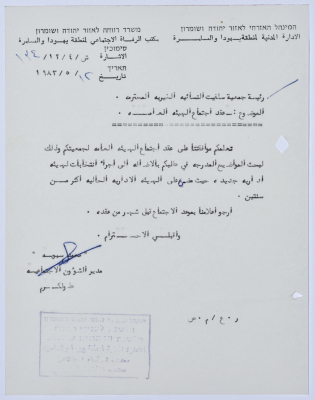 המינהל האזרחי לאזור יהודה ושומרון
الادارة المدنية لمنطقة يهودا والسامرة
משרד רווחה לאזור יהודה ושומרון
مكتب الرفاه الاجتماعي لمنطقة يهودا والسامرة
סימוכין
الاشارة ش/١٢/٤/
תאריך
تاريخ ١٢/٥/١٩٨٣
رئيسة جمعية سلفيت النسائية الخيرية المحترمه .
الموضوع : عقد اجتماع الهيئه العامه .
نحيطكم موافقتنا على عقد اجتماع الهيئه العامه لجمعيتكم وذلك
لبحث المواضيع المدرجه في طلبكم بالاضافه الى اجراء انتخابات لهيئه
اداريه جديده حيث مضى على الهيئه الاداريه الحاليه اكثر من
سنتين .
ارجو اعلامنا بموعد الاجتماع قبل شهر من عقده .
واقبلي الاحترام ،
مدير الشؤون الاجتماعيه
طولكرم
ر.ع/م.ص